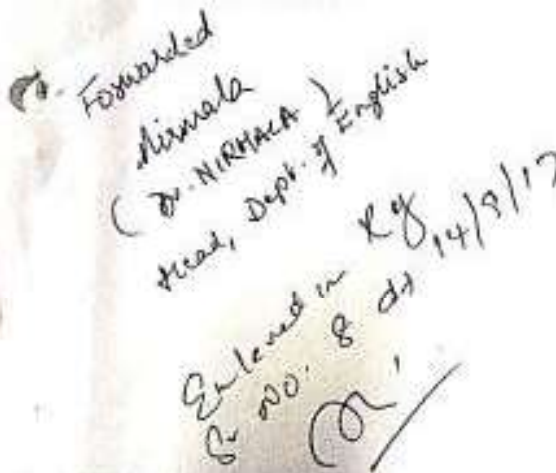 Forwarded
Nirmala
(Dr. NIRMALA)
Head, Dept. of English
Entered in Reg
Sr No. 8 dt 14/8/17